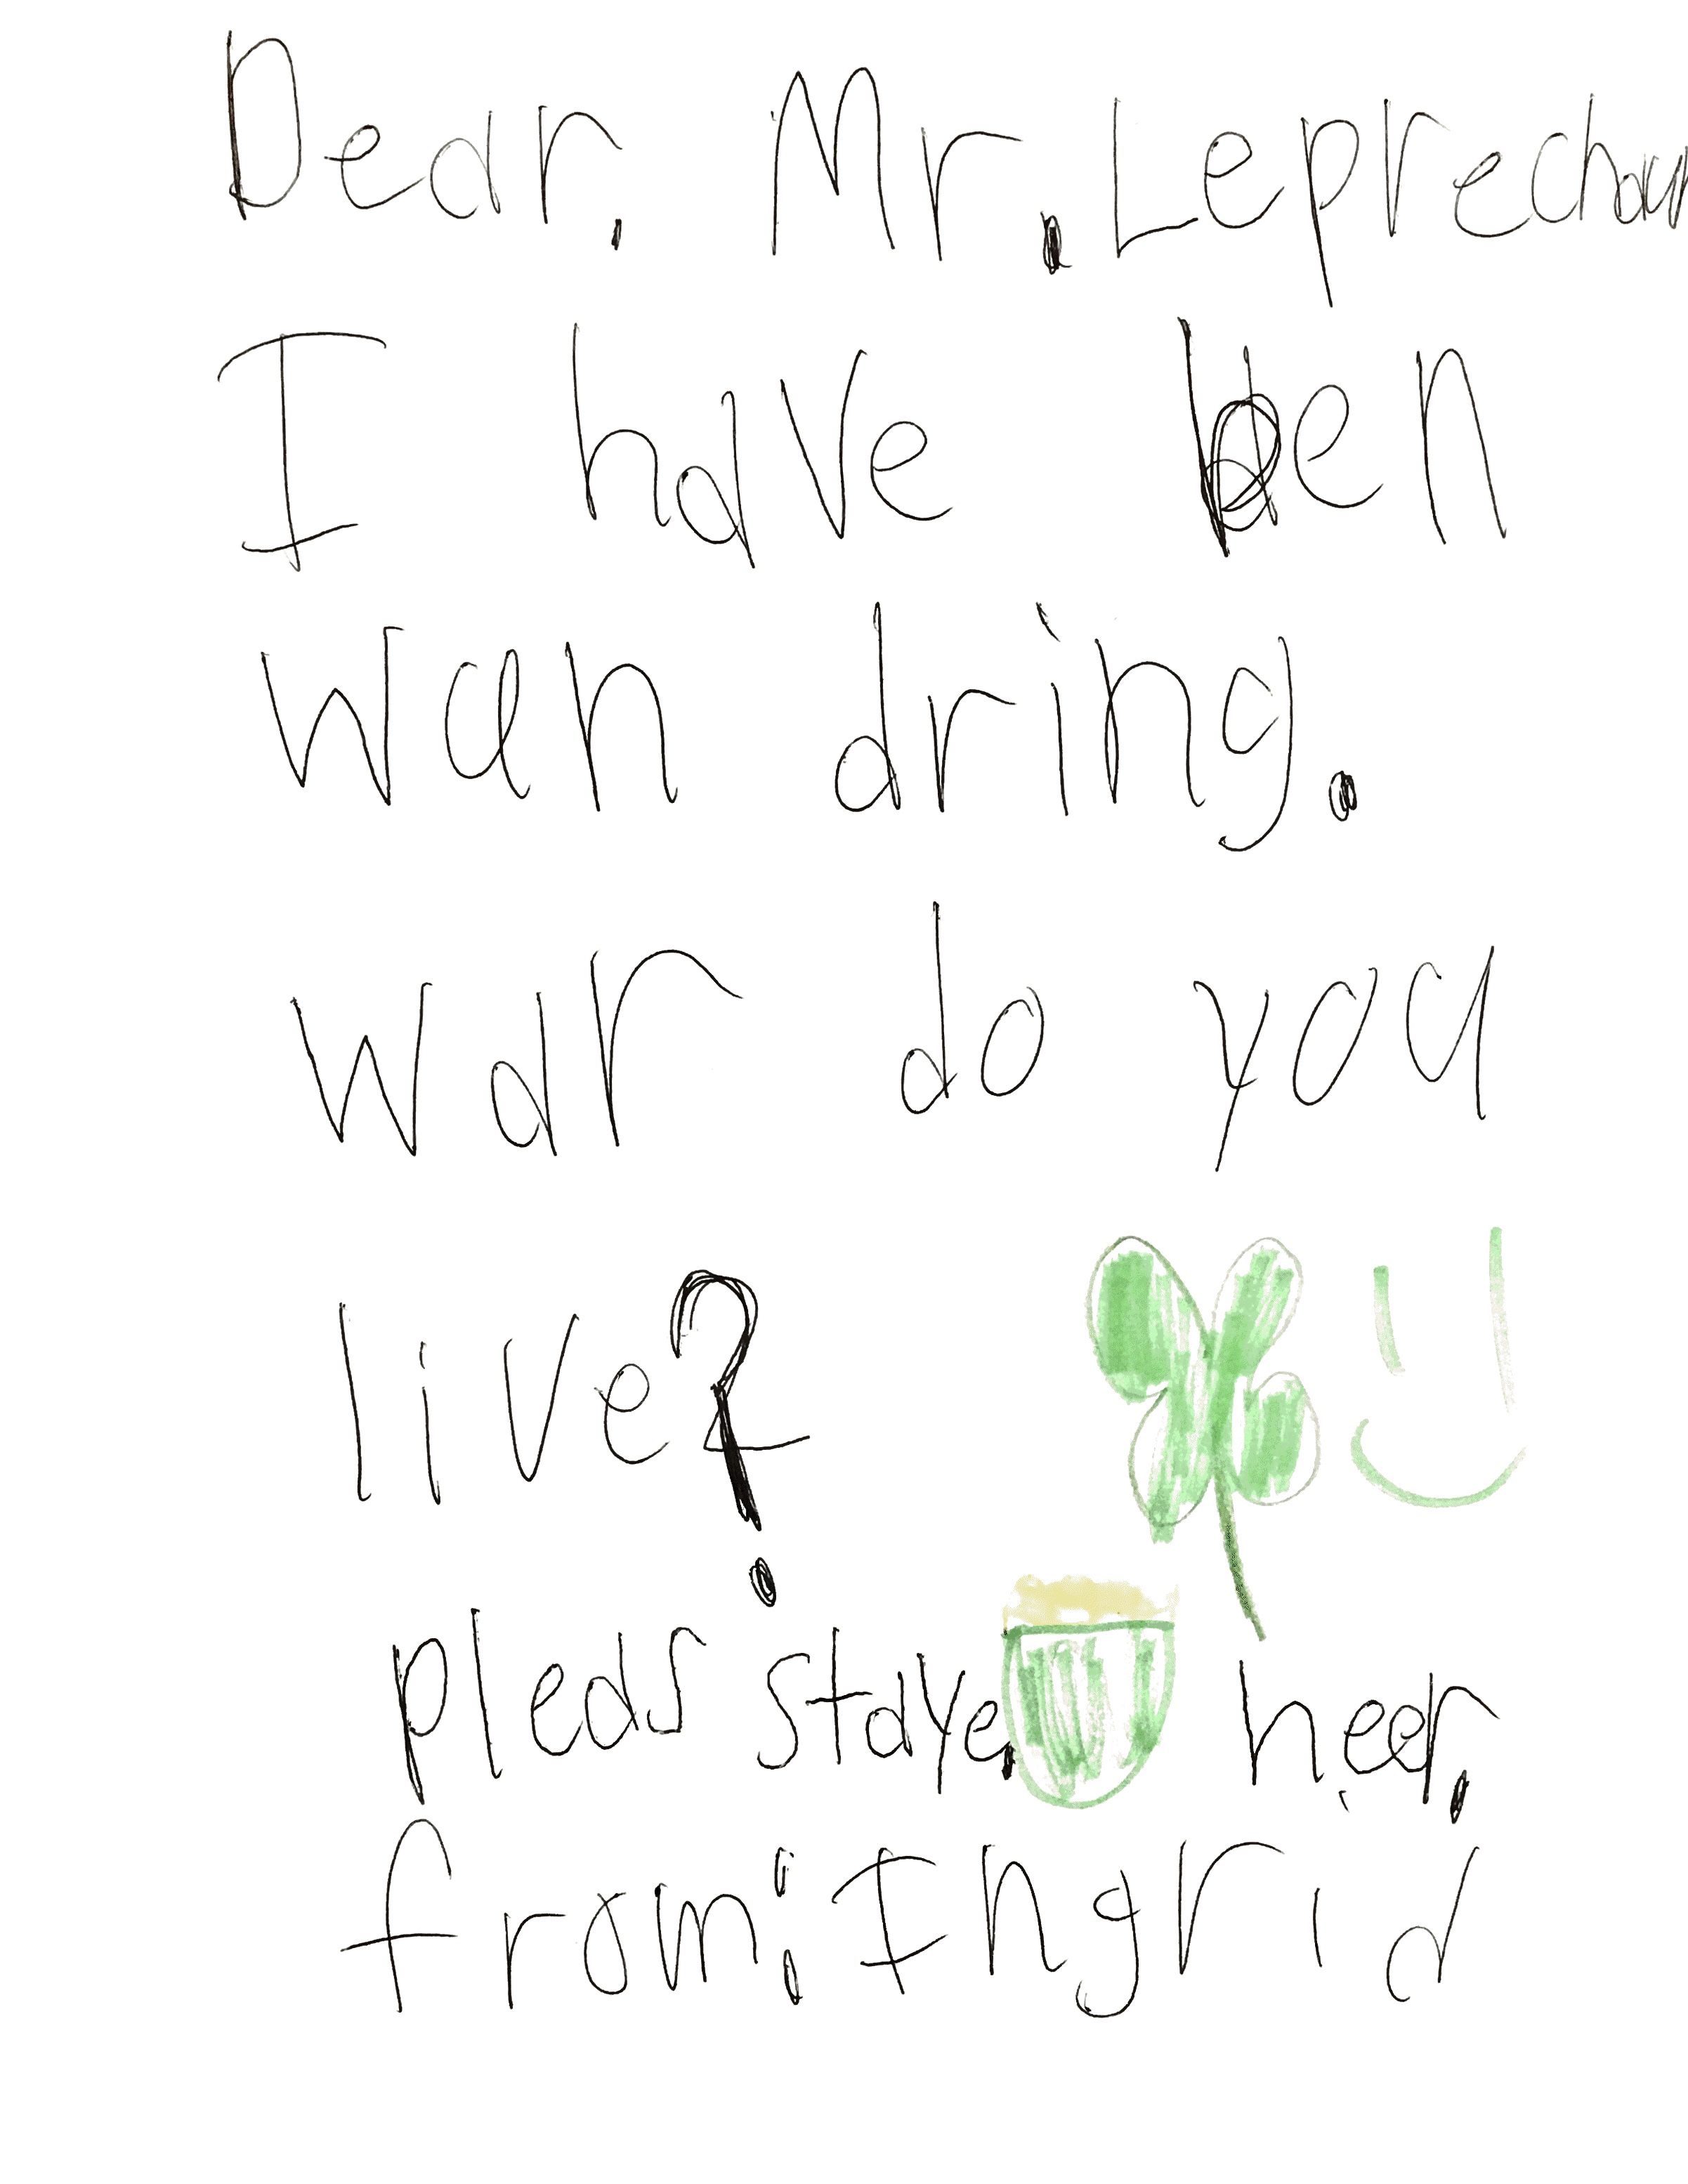 Dear. Mr. Leprechaun
I have ben
wan dring.
war do you
live?
pleas staye. heer.
from: Ingrid